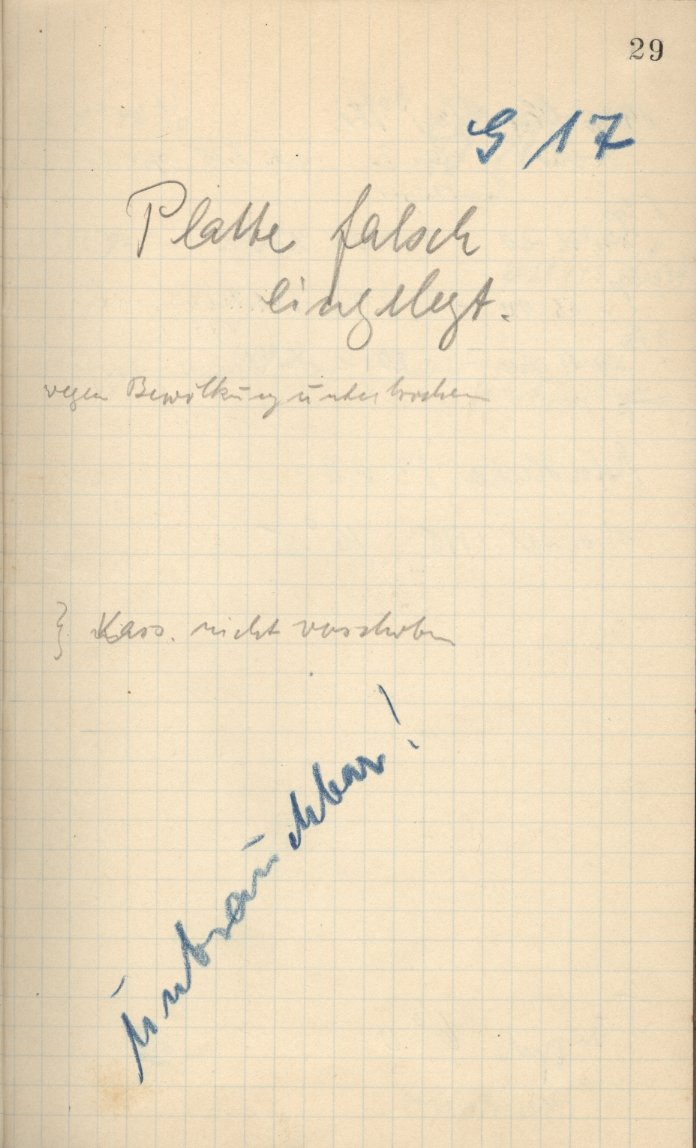 29
G 17
Platte falsch
eingelegt.
wegen Bewölkung unterbrochen
} Kass. nicht verschoben
unbrauchbar!